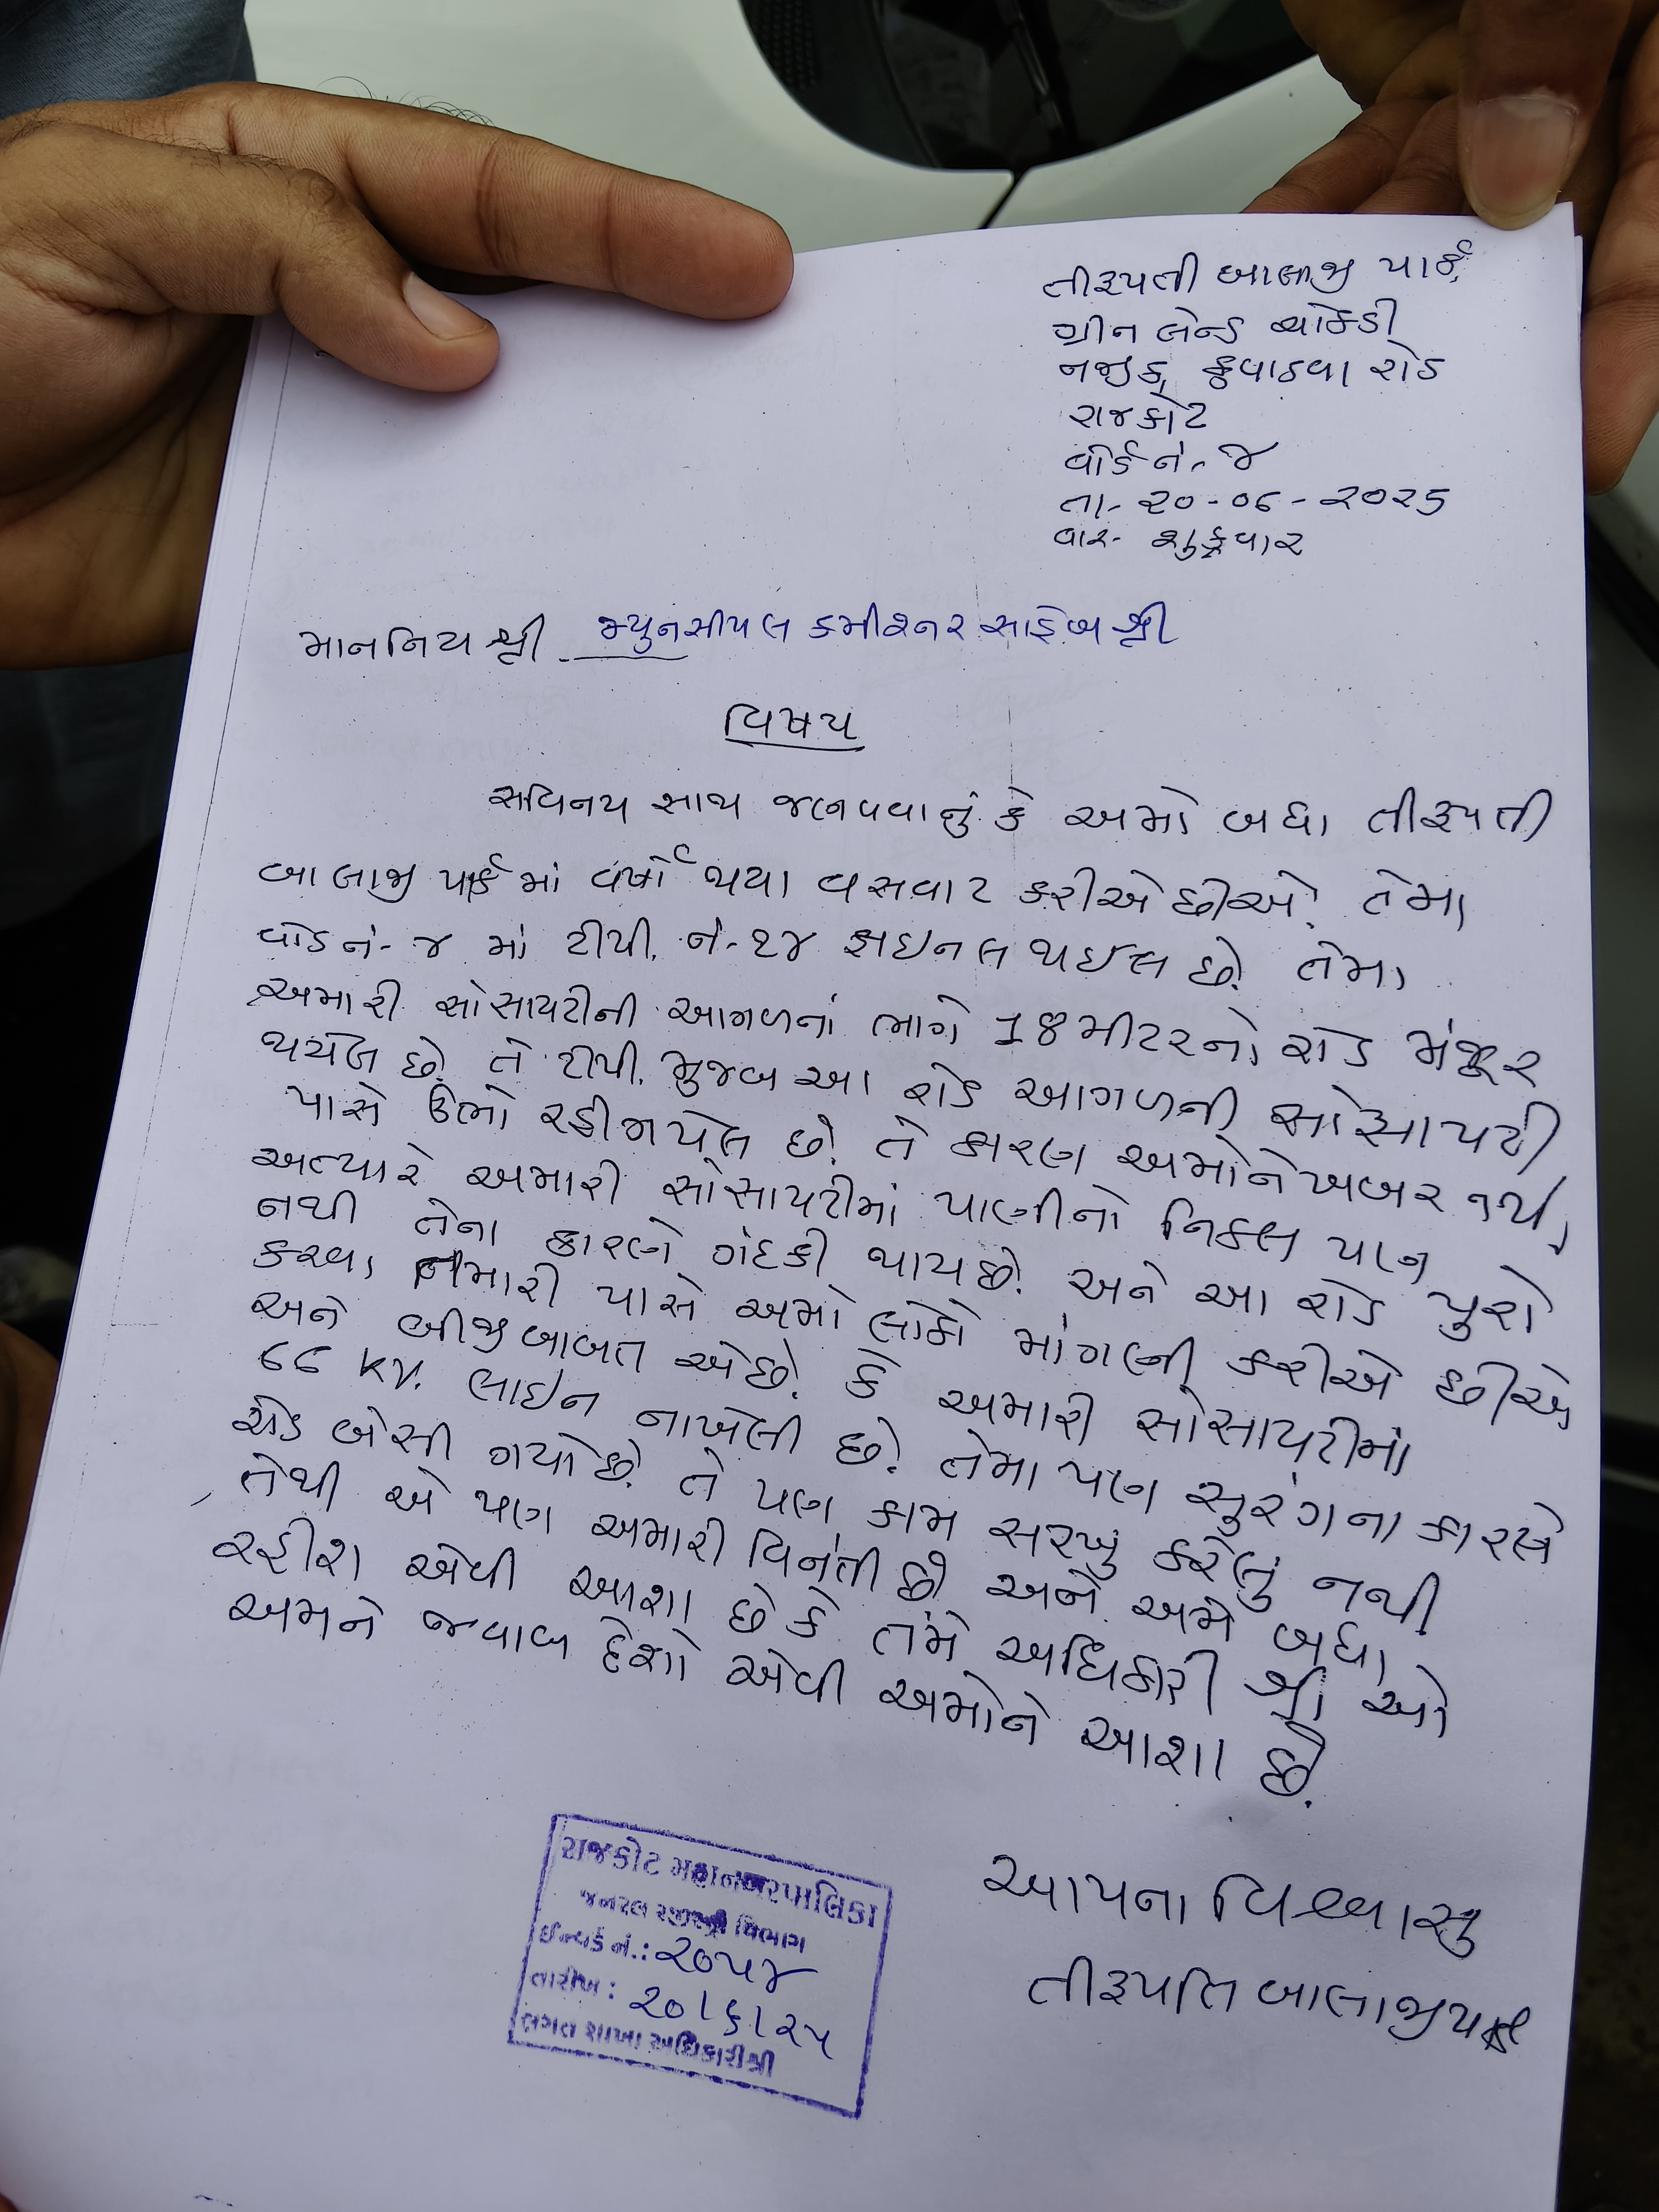 તીરૂપતી બાલાજી પાર્ક,
ગ્રીન લેન્ડ ચોકડી
નજીક, કુવાડવા રોડ
રાજકોટ
વોર્ડ નં.- ૪
તા.- ૨૦-૦૬-૨૦૨૫
વાર- શુક્રવાર
માનનિય શ્રી મ્યુનસીપલ કમીશ્નર સાહેબ શ્રી
વિષય
સવિનય સાથ જણાવવાનું કે અમો બધા તીરૂપતી
બાલાજી પાર્ક માં વર્ષો થયા વસવાટ કરીએ છીએ. તેમા
વોર્ડ નં- ૪ માં ટીપી. નં- ૨૪ ફાઇનલ થઇલ છે. તેમા
અમારી સોસાયટીની આગળનાં ભાગે 18 મીટરનો રોડ મંજૂર
થયેલ છે. તે ટીપી. મુજબ આ રોડ આગળની સોસાયટી
પાસે ઉભો રહીગયેલ છે. તે કારણ અમોને ખબર નથી,
અત્યારે અમારી સોસાયટીમાં પાણીનો નિકલ પણ
નથી તેના કારણે ગંદકી થાય છે. અને આ રોડ પુરો
કરવા તમારી પાસે અમો લોકો માંગણી કરીએ છીએ
અને બીજી બાબત એ છે. કે અમારી સોસાયટીમાં
૬૬ KV. લાઇન નાખેલી છે. તેમા પણ સુરંગના કારણે
રોડ બેસી ગયો છે. તે પણ કામ સરખું કરેલું નથી.
તેથી એ પણ અમારી વિનંતી છે અને અમે બધા
રહીશ એવી આશા છે કે તમે અધિકારી શ્રી ઓ
અમને જવાબ દેશો એવી અમોને આશા છે.
આપના વિશ્વાસુ
તીરૂપતિ બાલાજી પાર્ક
રાજકોટ મહાનગરપાલિકા
જનરલ રજીસ્ટ્રી વિભાગ
ઈન્વર્ડ નં.: ૨૦૫૪
તારીખ : ૨૦/૬/૨૫
લગત શાખા અધિકારીશ્રી